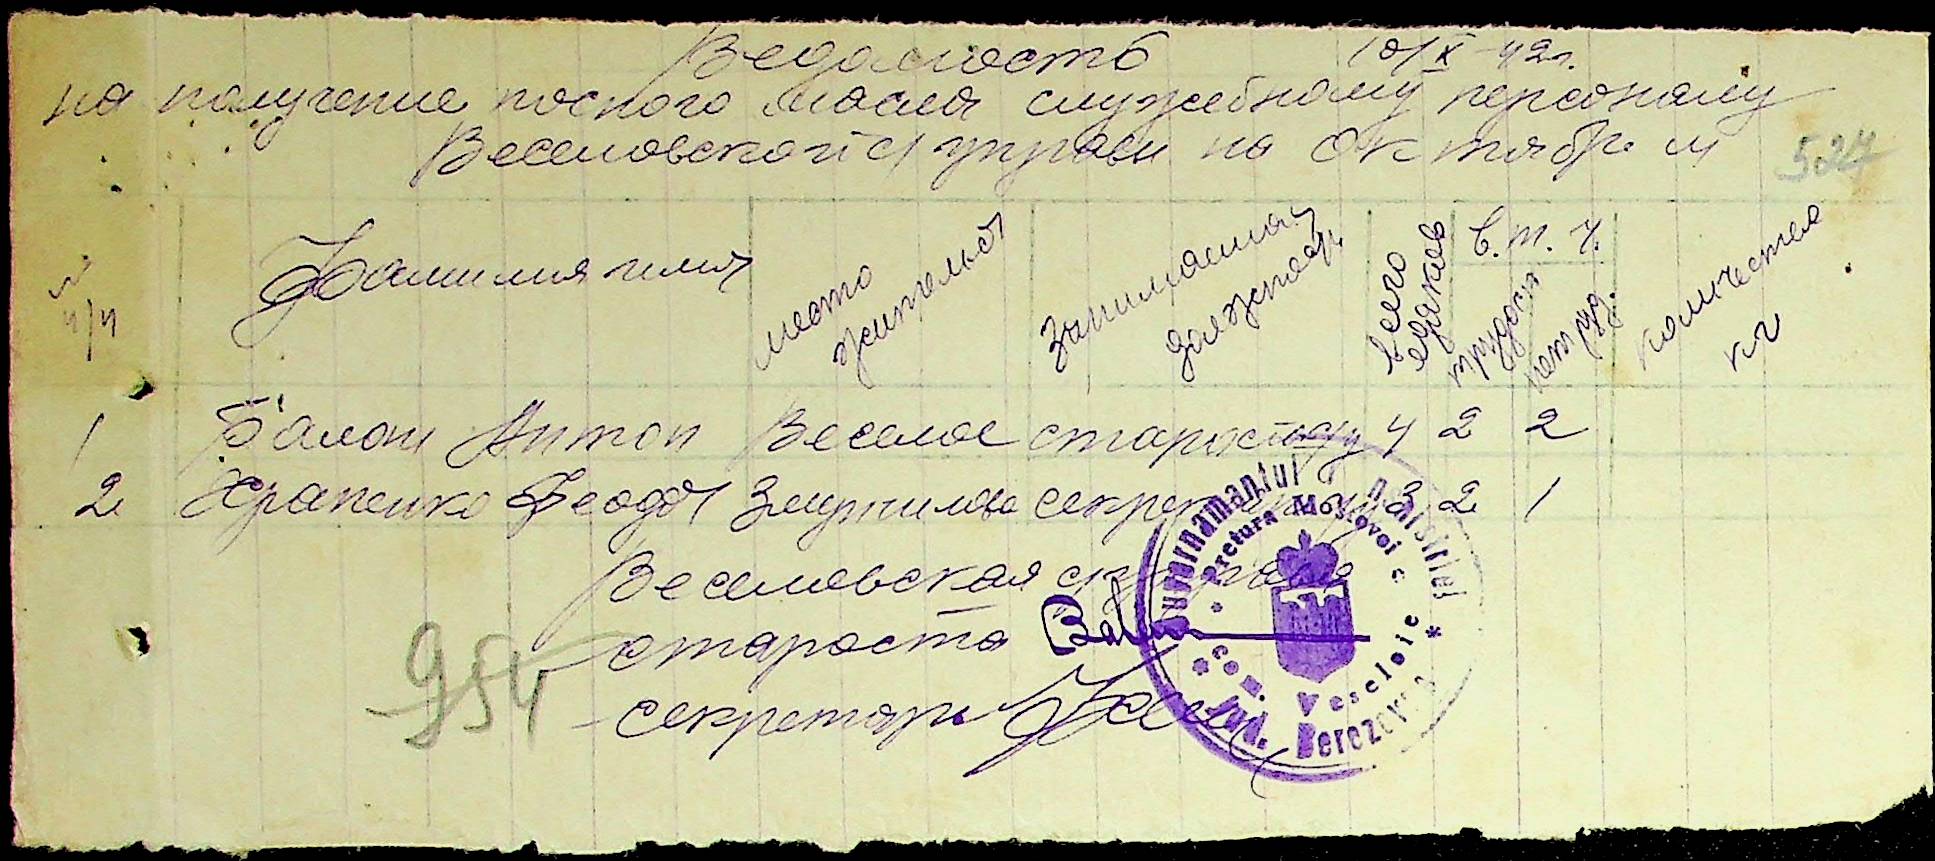 Ведомость 10/X-42г.
на получение посного масла служебному персоналу
Веселовской с/управи на Октябрь м
527
№ п/п
Фамилия имя
место жительст
занимаемая должност
всего едаков
в. т. ч.
трудосп
нетруд.
количество кг
1 Балан Антон Веселое старосту 4 2 2
2 Храпенко Феодос секретарь 3 2 1
Веселовская с/управа
староста
секретарь
954
Guvernamantul Transnistriei
Pretura Mostovoi
com. Veseloie
Jud. Berezovca